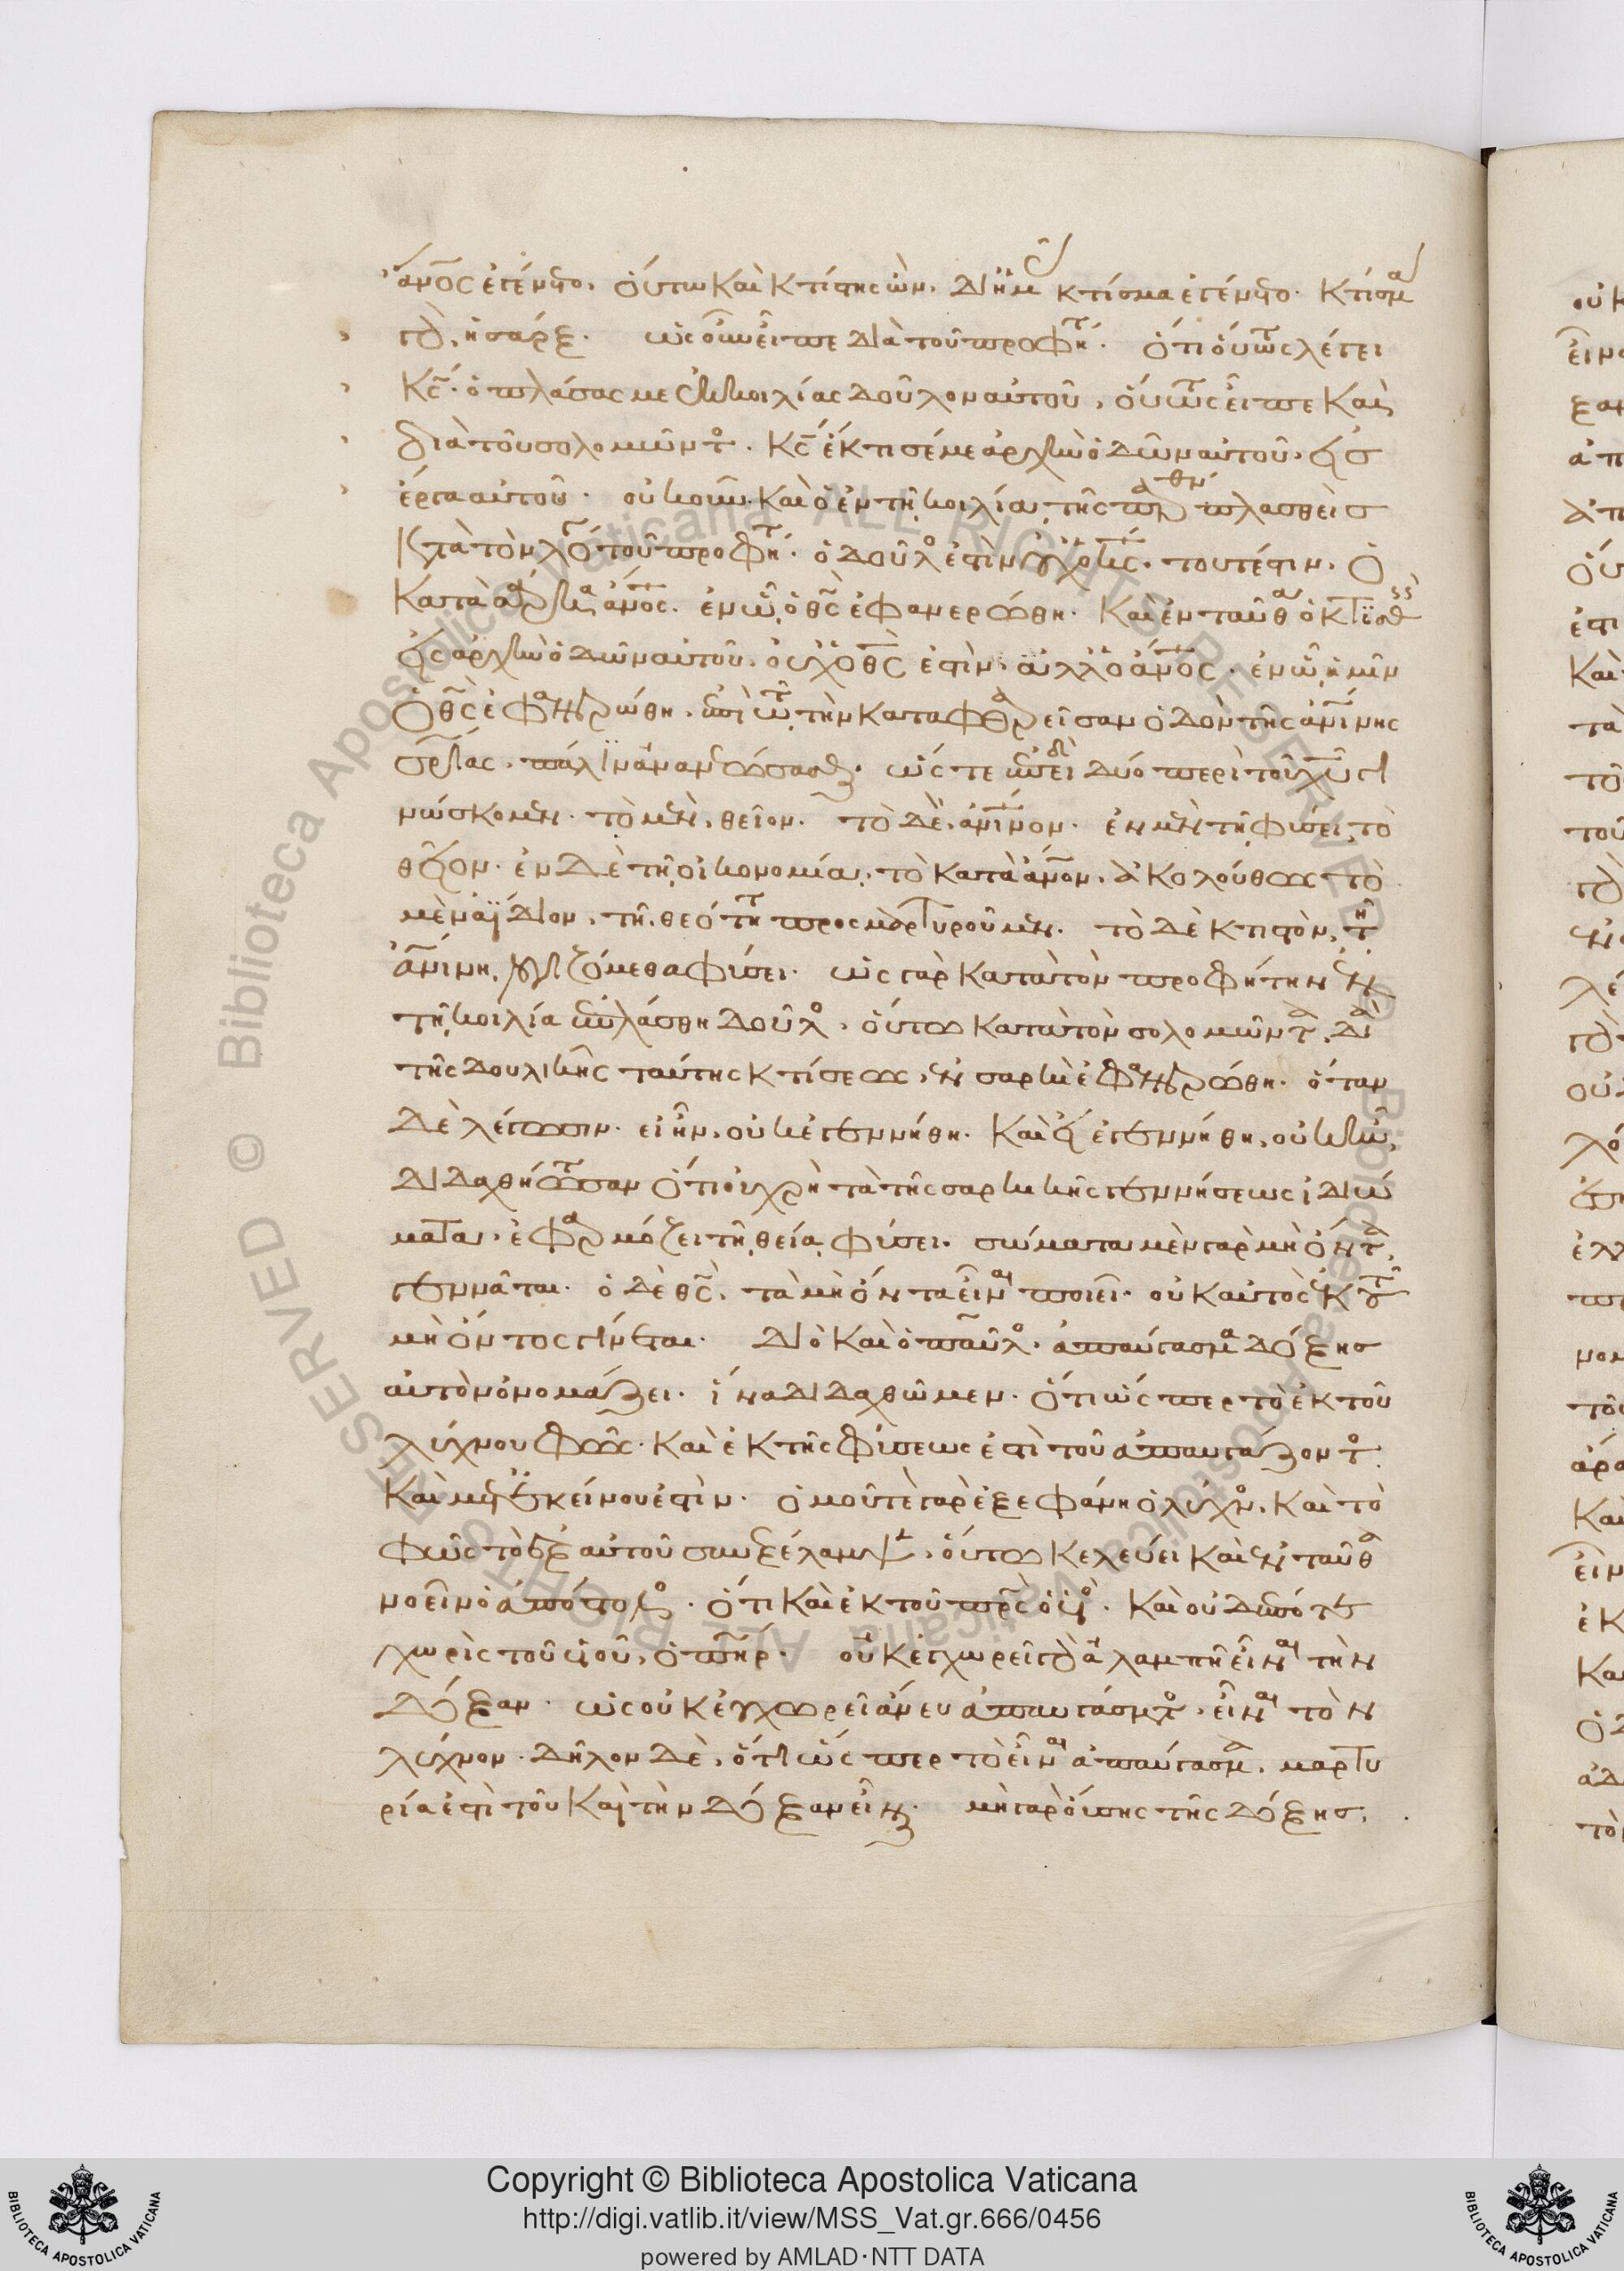 ἄνος ἐγένετο. οὕτω καὶ κτίστης ὢν. δι ἡμᾶς κτίσμα ἐγένετο. κτίσμα
γὰρ, ἡ σάρξ. ὡς οὖν εἶπε διὰ τοῦ προφήτου. ὅτι οὕτως λέγει
κς. ὁ πλάσας με ἐκ κοιλίας δοῦλον αὐτοῦ, οὕτως εἶπε καὶ
διὰ τοῦ σολομῶντος. κς ἔκτισέ με ἀρχὴν ὁδῶν αὐτοῦ. εἰς
ἔργα αὐτοῦ. οὐκοῦν καὶ ὁ ἐν τῇ κοιλίᾳ τῆς παρθένου πλασθεὶς
κατὰ τὸν λόγον τοῦ προφήτου. ὁ δοῦλος ἐστὶν οὐχ ὁ κς. τουτέστιν. ὁ
κατὰ σάρκα ἄνος. ἐν ᾧ ὁ θς ἐφανερώθη. καὶ ἐνταῦθα ὁ κτισθεὶς
εἰς ἀρχὴν ὁδῶν αὐτοῦ. οὐχ ὁ θς ἐστίν. ἀλλ ὁ ἄνος. ἐν ᾧ ἡμῖν
ὁ θς ἐφανερώθη. ἐπὶ τῷ τὴν καταφθαρεῖσαν ὁδὸν τῆς ἀνίνης
σρίας. πάλιν ἀνανεώσασθαι. ὥστε ἐπειδὴ δύο περὶ τοῦ χυ γι
νώσκομεν. τὸ μὲν, θεῖον. τὸ δὲ, ἀνινον. ἐν μὲν τῇ φύσει, τὸ
θεῖον. ἐν δὲ τῇ οἰκονομίᾳ, τὸ κατὰ ἄνον. ἀκολούθως τὸ
μὲν ἀΐδιον. τῇ θεότητι προσμαρτυροῦμεν. τὸ δὲ κτιστὸν, τῇ
ἀνίνῃ λογιζόμεθα φύσει. ὡς γὰρ κατὰ τὸν προφήτην ἐν
τῇ κοιλία ἐπλάσθη δοῦλος. οὕτω κατὰ τὸν σολομῶντα, διὰ
τῆς δουλικῆς ταύτης κτίσεως, ἐν σαρκὶ ἐφανερώθη. ὅταν
δὲ λέγωσιν. εἰ ἦν, οὐκ ἐγεννήθη. καὶ εἰ ἐγεννήθη, οὐκ ἦν,
διδαχθήτωσαν ὅτι οὐ χρὴ τὰ τῆς σαρκικῆς γεννήσεως ἰδιώ
ματα. ἐφαρμόζει τῇ θείᾳ φύσει. σώματα μὲν γὰρ μὴ ὄντα,
γεννᾶται. ὁ δὲ θς, τὰ μὴ ὄντα εἶναι ποιεῖ. οὐκ αὐτὸς ἐκ τοῦ
μὴ ὄντος γίνεται. διὸ καὶ ὁ παῦλος. ἀπαύγασμα δόξης
αὐτὸν ὀνομάζει. ἵνα διδαχθῶμεν. ὅτι ὥσπερ τὸ ἐκ τοῦ
λύχνου φῶς. καὶ ἐκ τῆς φύσεως ἐστὶ τοῦ ἀπαυγάζοντος
καὶ μετ ἐκείνου ἐστίν. ὁμοῦ τὲ γὰρ ἐξεφάνη ὁ λύχνος, καὶ τὸ
φῶς τὸ ἐξ αὐτοῦ συνεξέλαμψε. οὕτω κελεύει καὶ ἐνταῦθα
νοεῖν ὁ ἀπόστολος. ὅτι καὶ ἐκ τοῦ πρς ὁ υἱός. καὶ οὐδέποτε
χωρὶς τοῦ υἱοῦ, ὁ πηρ. οὐκ ἐγχωρεῖ γὰρ ἀλαμπῆ εἶναι τὴν
δόξαν. ὡς οὐκ ἐγχωρεῖ ἄνευ ἀπαυγάσματος. εἶναι τὸν
λύχνον. δῆλον δὲ, ὅτι ὥσπερ τὸ εἶναι ἀπαύγασμα, μαρτυ
ρία ἐστὶ τοῦ καὶ τὴν δόξαν εἶναι. μὴ γὰρ οὔσης τῆς δόξης,
Copyright © Biblioteca Apostolica Vaticana
http://digi.vatlib.it/view/MSS_Vat.gr.666/0456
powered by AMLAD·NTT DATA